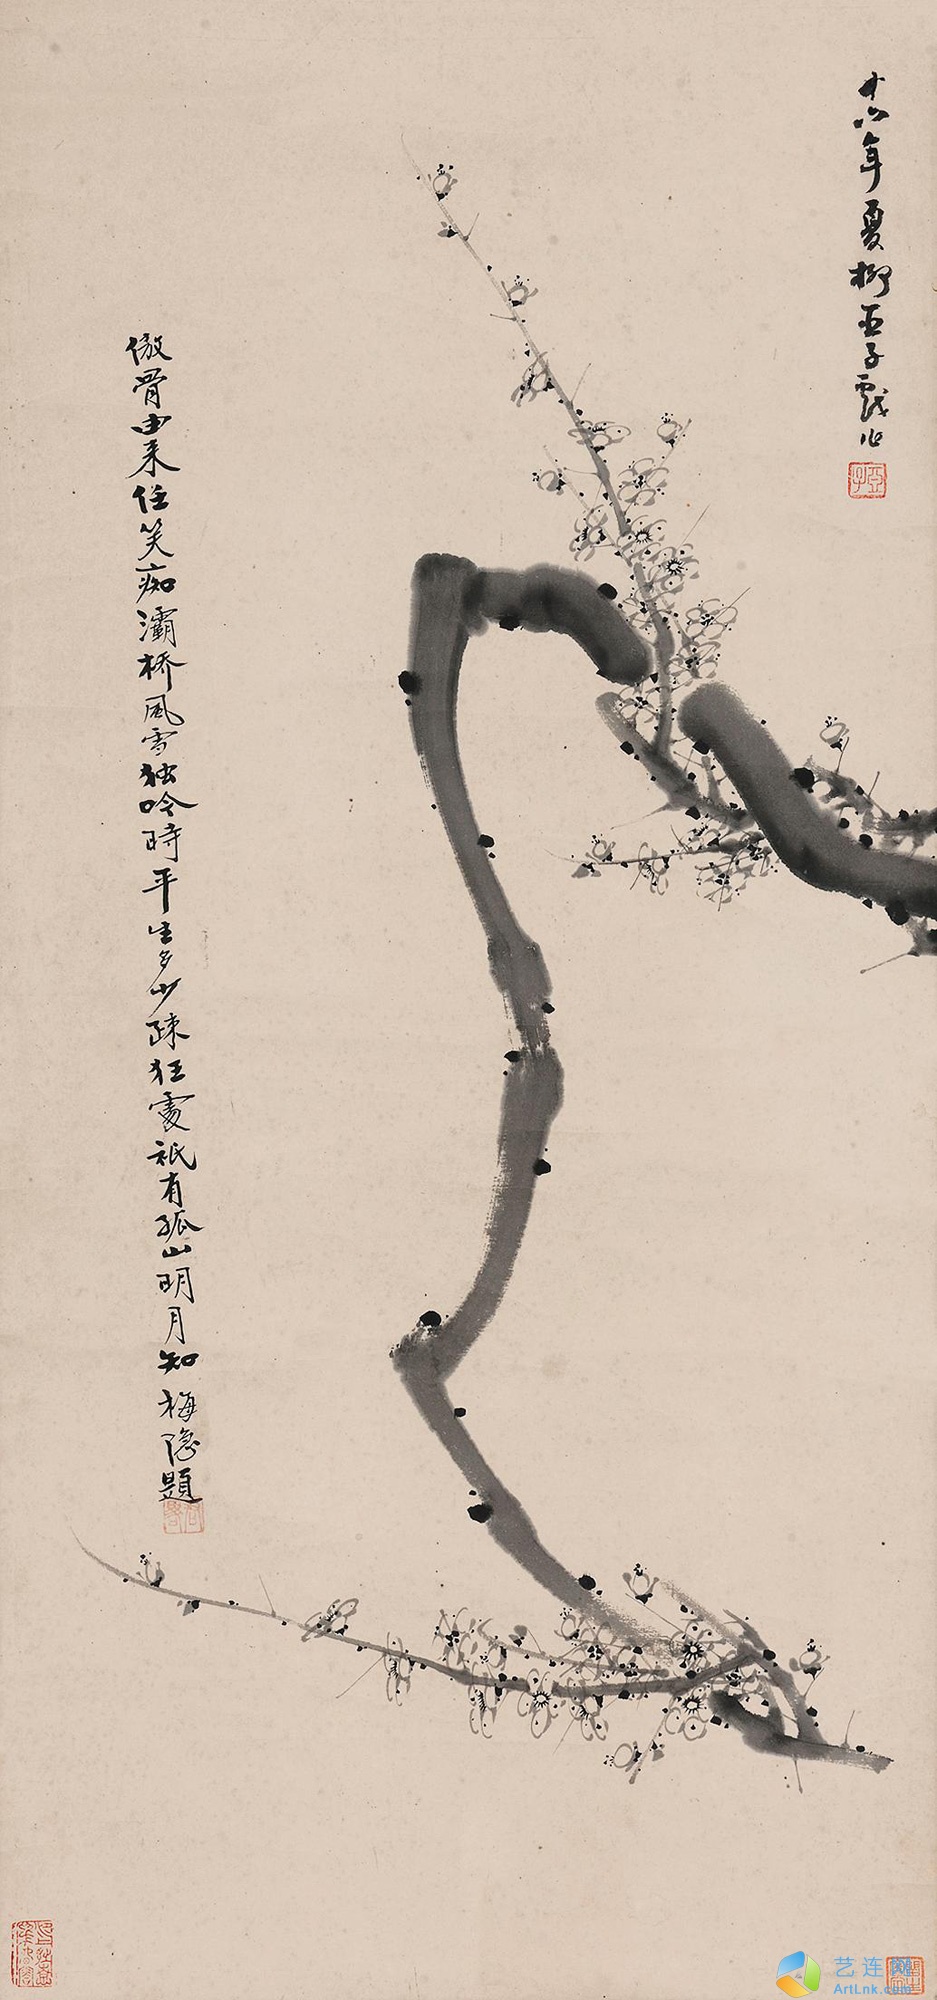 十六年夏柳亚子戏作
亞子
傲骨由来任笑痴灞桥風雪独吟時平生多少疎狂處祇有孤山明月知梅隐題
艺连网
ArtLnk.com